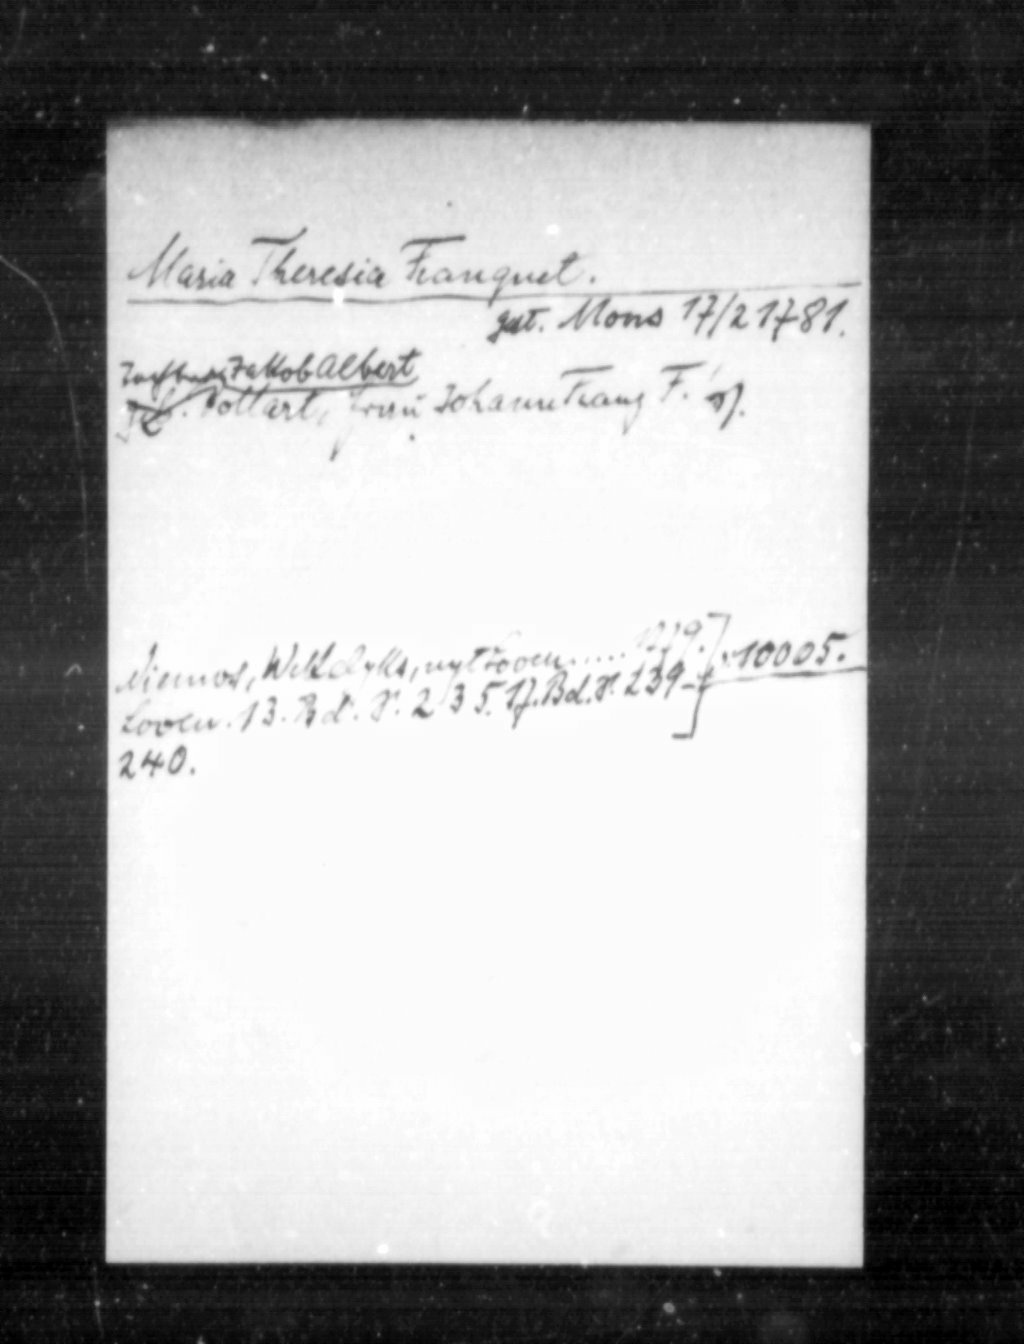 Maria Theresia Franquet.
get. Mons 17/2 1781.
Jakob Albert
Pottart, Johann Franz F.
Niemos, Wekdyks, uyt Loven..... 1279. 10005.
Loven. 13. Bd. S. 235. 17. Bd. S. 239 -
240.